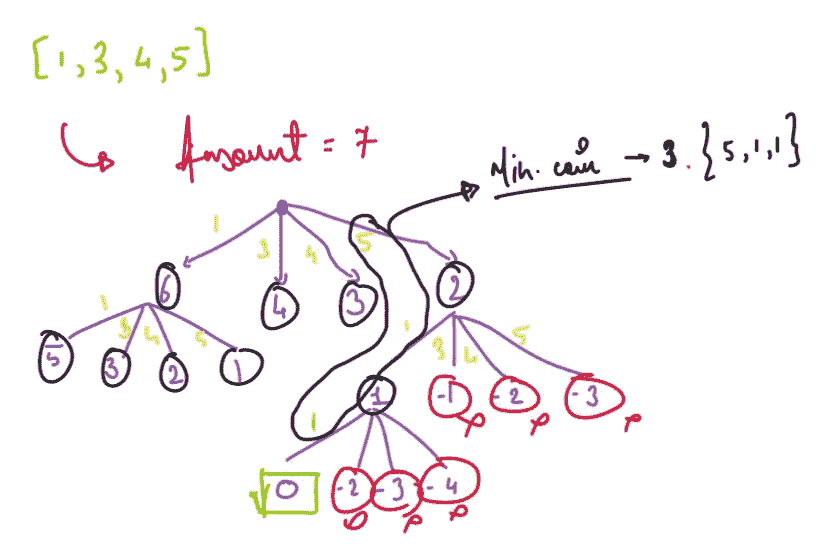 [1,3,4,5]
Amount = 7
Min. coin → 3. {5,1,1}
1 3 4 5
6 4 3 2
1 3 4 5 1 3 4 5
5 3 2 1 1 -1 -2 -3
1
0 -2 -3 -4